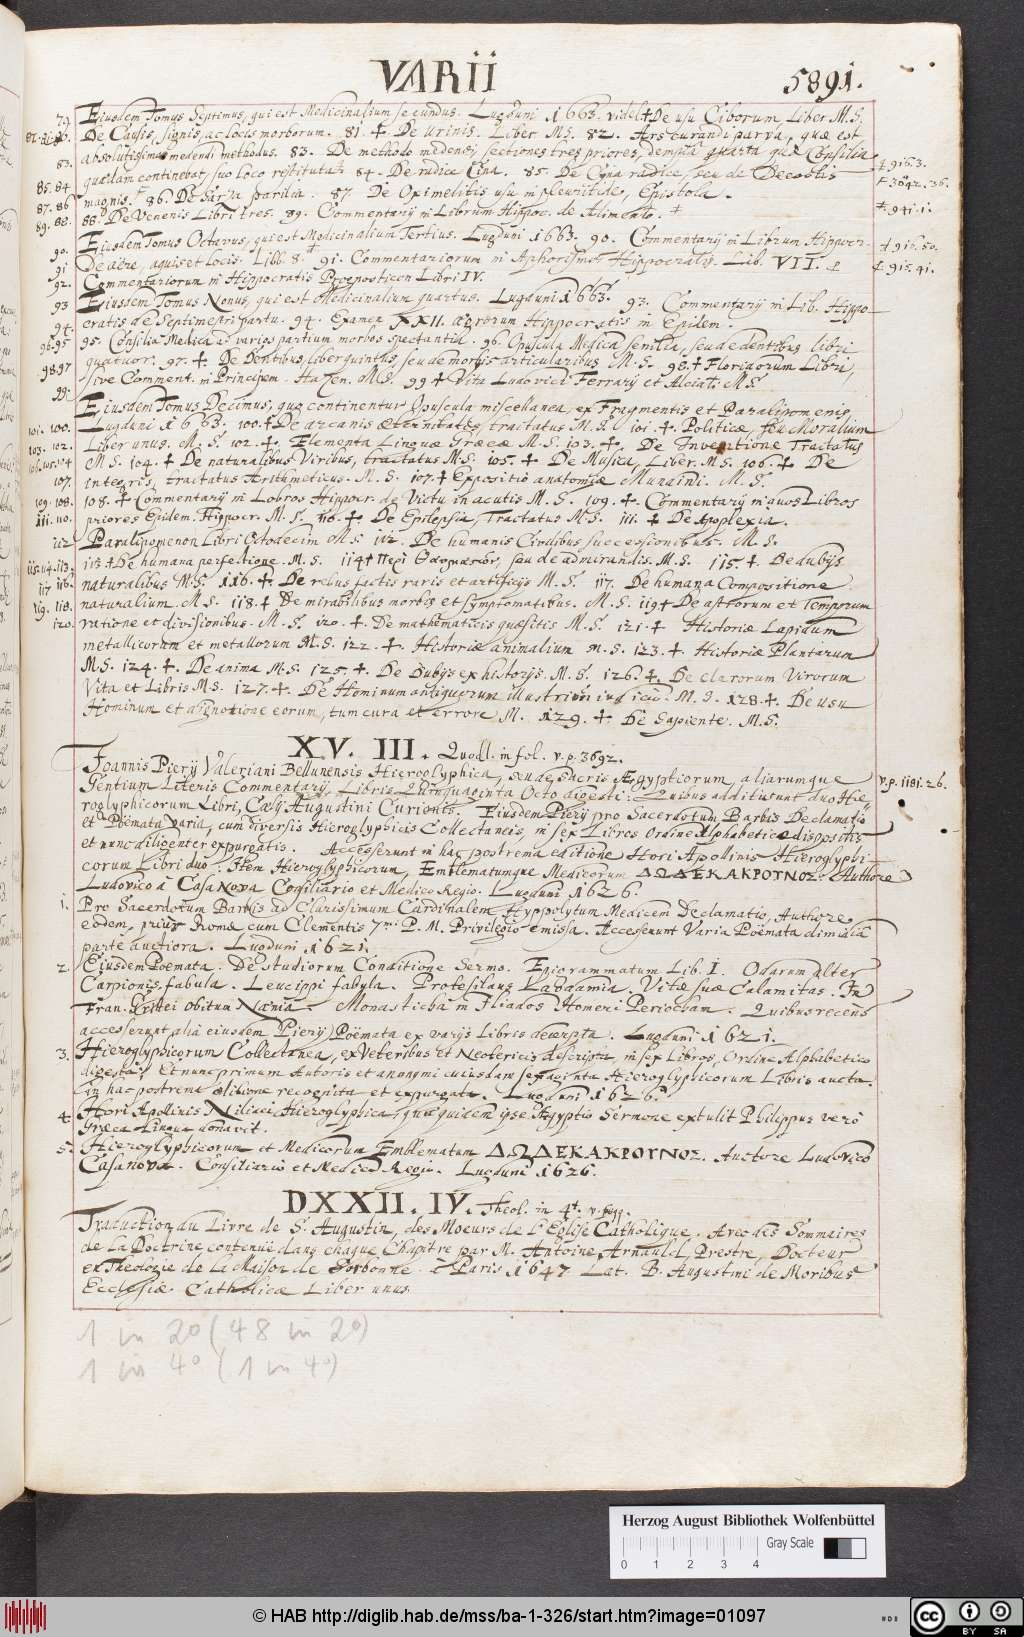 VARII 5891.
79. Ejusdem Tomus Septimus, qui est Medicinalium secundus. Lugduni 1663. videl. ✝ De usu Ciborum Liber M.S.
De Causis, signis, ac locis morborum. 81. ✝ De urinis. Liber MS. 82. Ars curandi parva, quæ est
83. absolutissimus medendi methodus. 83. De methodo medendi, sectiones tres priores, dempta quarta quæ Consilia
85. 84 quædam continebat, suo loco restituta. 84. De radice Cina. 85. De Cyna radice, seu de Decoctis
87. 86 magnis. 86. De Sarza parilia. 87. De Oximelitis usu in pleuritide, Epistola.
89. 88. 88. De Venenis Libri tres. 89. Commentarij in Librum Hippoc. de Alimento. ✝
✝ 941.1.
90. Ejusdem Tomus Octavus, qui est Medicinalium Tertius. Lugduni 1663. 90. Commentarij in Librum Hippocr.
91 De aëre, aquis et locis. Lib. 8. 91. Commentariorum in Aphorismos Hippocratis. Lib. VII.
92. Commentariorum in Hippocratis Prognosticon Libri IV.
93 Ejusdem Tomus Nonus, qui est Medicinalium quartus. Lugduni 1663. 93. Commentarij in Lib. Hippo-
94. cratis de Septimestri partu. 94. Examen XXII. ægrorum Hippocratis in Epidem.
96.95 95. Consilia Medica ad varios partium morbos spectantia. 96. Opuscula Medica senilia, seu de dentibus libri
98.97 quatuor. 97. ✝. De Dentibus, liber quintus, seu de morbis articularibus M.S. 98. ✝ Floridorum Libri,
99. sive Comment. in Principem. Hazen. M.S. 99 ✝ Vita Ludovici Ferrarij et Alciati M.S.
Ejusdem Tomus Decimus, quo continentur Opuscula miscellanea, ex Fragmentis et Paralipomenis.
101. 100. Lugduni 1663. 100. ✝ De arcanis æternitatis, tractatus M.S. 101. ✝. Politicæ, seu Moralium
103. 102. Liber unus. M.S. 102. ✝. Elementa Linguæ Græcæ M.S. 103. ✝. De Inventione Tractatus
106.105.104 M.S. 104. ✝ De naturalibus Viribus, tractatus M.S. 105. ✝ De Musica, Liber. M.S. 106. ✝ De
107. integris, tractatus Arithmeticus. M.S. 107. ✝ Expositio anatomiæ Mundini. M.S.
109. 108. 108. ✝ Commentarij in Lobros Hippocr. de Victu in acutis M.S. 109. ✝. Commentarij in duos Libros
111. 110. priores Epidem. Hippocr. M.S. 110. ✝. De Epilepsia, Tractatus M.S. 111. ✝ De Apoplexia.
112 Paralipomenon Libri Octodecim M.S. 112. De humanis Civilibus successionibus. M.S.
115.114.113. 113 ✝ De humana perfectione. M.S. 114 ✝ Περὶ θαυμασιῶν, seu de admirandis. M.S. 115. ✝. De dubijs
117 116. naturalibus M.S. 116. ✝. De rebus factis raris et artificijs M.S. 117. De humana Compositione
119. 118. naturalium. M.S. 118. ✝ De mirabilibus morbis et symptomatibus. M.S. 119 ✝ De astrorum et Temporum
120. ratione et divisionibus. M.S. 120. ✝. De mathematicis quæsitis M.S. 121. ✝ Historiæ Lapidum
metallicorum et metallorum M.S. 122. ✝. Historiæ animalium M.S. 123. ✝. Historiæ Plantarum
M.S. 124. ✝. De anima M.S. 125. ✝. De Dubijs ex historijs M.S. 126. ✝. De clarorum Virorum
Vita et Libris MS. 127. ✝. De Hominum antiquorum illustrium iudicio. M.S. 128. ✝. De usu
Hominum et dignotione eorum, tum cura et errore M. 129. ✝. De Sapiente. M.S.
XV. III. Quodl. in fol. v.p. 3692.
Joannis Pierij Valeriani Bellunensis Hieroglyphica, seu de sacris Ægyptiorum, aliarumque v.p. 1181.26.
Gentium Literis Commentarij, Libris Quinquaginta Octo digesti: Quibus additi sunt duo Hie-
roglyphicorum Libri, Cælij Augustini Curionis. Ejusdem Pierij pro Sacerdotum Barbis Declamatio
et Poëmata varia, cum diversis Hieroglyphicis Collectaneis, in sex Libros Ordine Alphabetico dispositis
et nunc diligenter expurgatis. Accesserunt in hac postrema editione Hori Apollinis Hieroglyphi-
corum Libri duo: Item Hieroglyphicorum, Emblematumque Medicorum ΔΩΔΕΚΑΚΡΟΥΝΟΣ. Authore
Ludovico a Casa Nova Consiliario et Medico Regio. Lugduni 1626.
1. Pro Sacerdotum Barbis ad Clarissimum Cardinalem Hyppolytum Medicem Declamatio, Authore
eodem, prius Romæ cum Clementis 7mi P.M. Privilegio emissa. Accesserunt Varia Poëmata dimidia
parte auctiora. Lugduni 1621.
2. Ejusdem Poemata. De studiorum Conditione Sermo. Epigrammatum Lib. I. Odarum alter
Carpionis fabula. Leucippi fabula. Protesilaus Laodamia. Vitæ suæ Calamitas. In
Fran. Cristei obitum Nænia. Monasticha in Iliados Homeri Periocham. Quibus recens
accesserunt alia eiusdem Pierij Poëmata ex varijs Libris decerpta. Lugduni 1621.
3. Hieroglyphicorum Collectanea, ex Veteribus et Neotericis descripta, in sex Libros, Ordine Alphabetico
digesta, Et nunc primum Autoris et anonymi cuiusdam sexaginta Hieroglyphicorum Libris aucta.
in hac postrema editione recognita et expurgata. Lugduni 1626.
4. Hori Apollinis Niliaci Hieroglyphica, quæ quidem ipse Ægyptio Sermone extulit Philippus vero
Græca Lingua donavit.
5. Hieroglyphicorum et Medicorum Emblematum ΔΩΔΕΚΑΚΡΟΥΝΟΣ. Auctore Ludovico
Casanova. Consiliario et Medico Regio. Lugduni 1626.
DXXII. IV. Theol. in 4t.
Traduction du Livre de S. Augustin, des Moeurs de L'Eglise Catholique. Avec des Sommaires
de la Doctrine contenuë dans chaque Chapitre par M. Antoine Arnauld, Prestre, Docteur
en Theologie de la Maison de Sorbonne. à Paris 1647 Lat. B. Augustini de Moribus
Ecclesiæ Catholicæ Liber unus
1 in 2° (48 in 2°)
1 in 4° (1 in 4°)
Herzog August Bibliothek Wolfenbüttel
Gray Scale
0 1 2 3 4
© HAB http://diglib.hab.de/mss/ba-1-326/start.htm?image=01097
cc BY SA